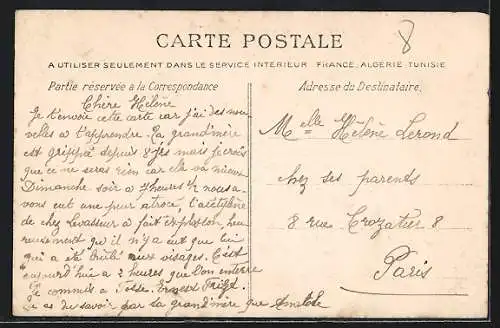 8
CARTE POSTALE
A UTILISER SEULEMENT DANS LE SERVICE INTERIEUR FRANCE, ALGERIE-TUNISIE
Partie réservée à la Correspondance
Chère Hélène
Je t'envoie cette carte car j'ai des nou
velles a t'apprendre. La grand'mère
est grippé depuis 8 jrs mais je crois
que ce ne sera rien car elle va mieux
Dimanche soir a 7 heures ½ nous a-
vons eut une peur atroce, l'acétylène
de chez Levasseur a fait explosion, heu
reusement qu'il n'y a eut que lui
qui a été brûlé aux visages. C'est
aujourd'hui a 2 heures que l'on enterre
le commis a Ernest
tu as du savoir par ta grand'mère que Anatole
Adresse du Destinataire.
Melle Hélène Lerond
chez ses parents
8 rue Crozatier 8
Paris